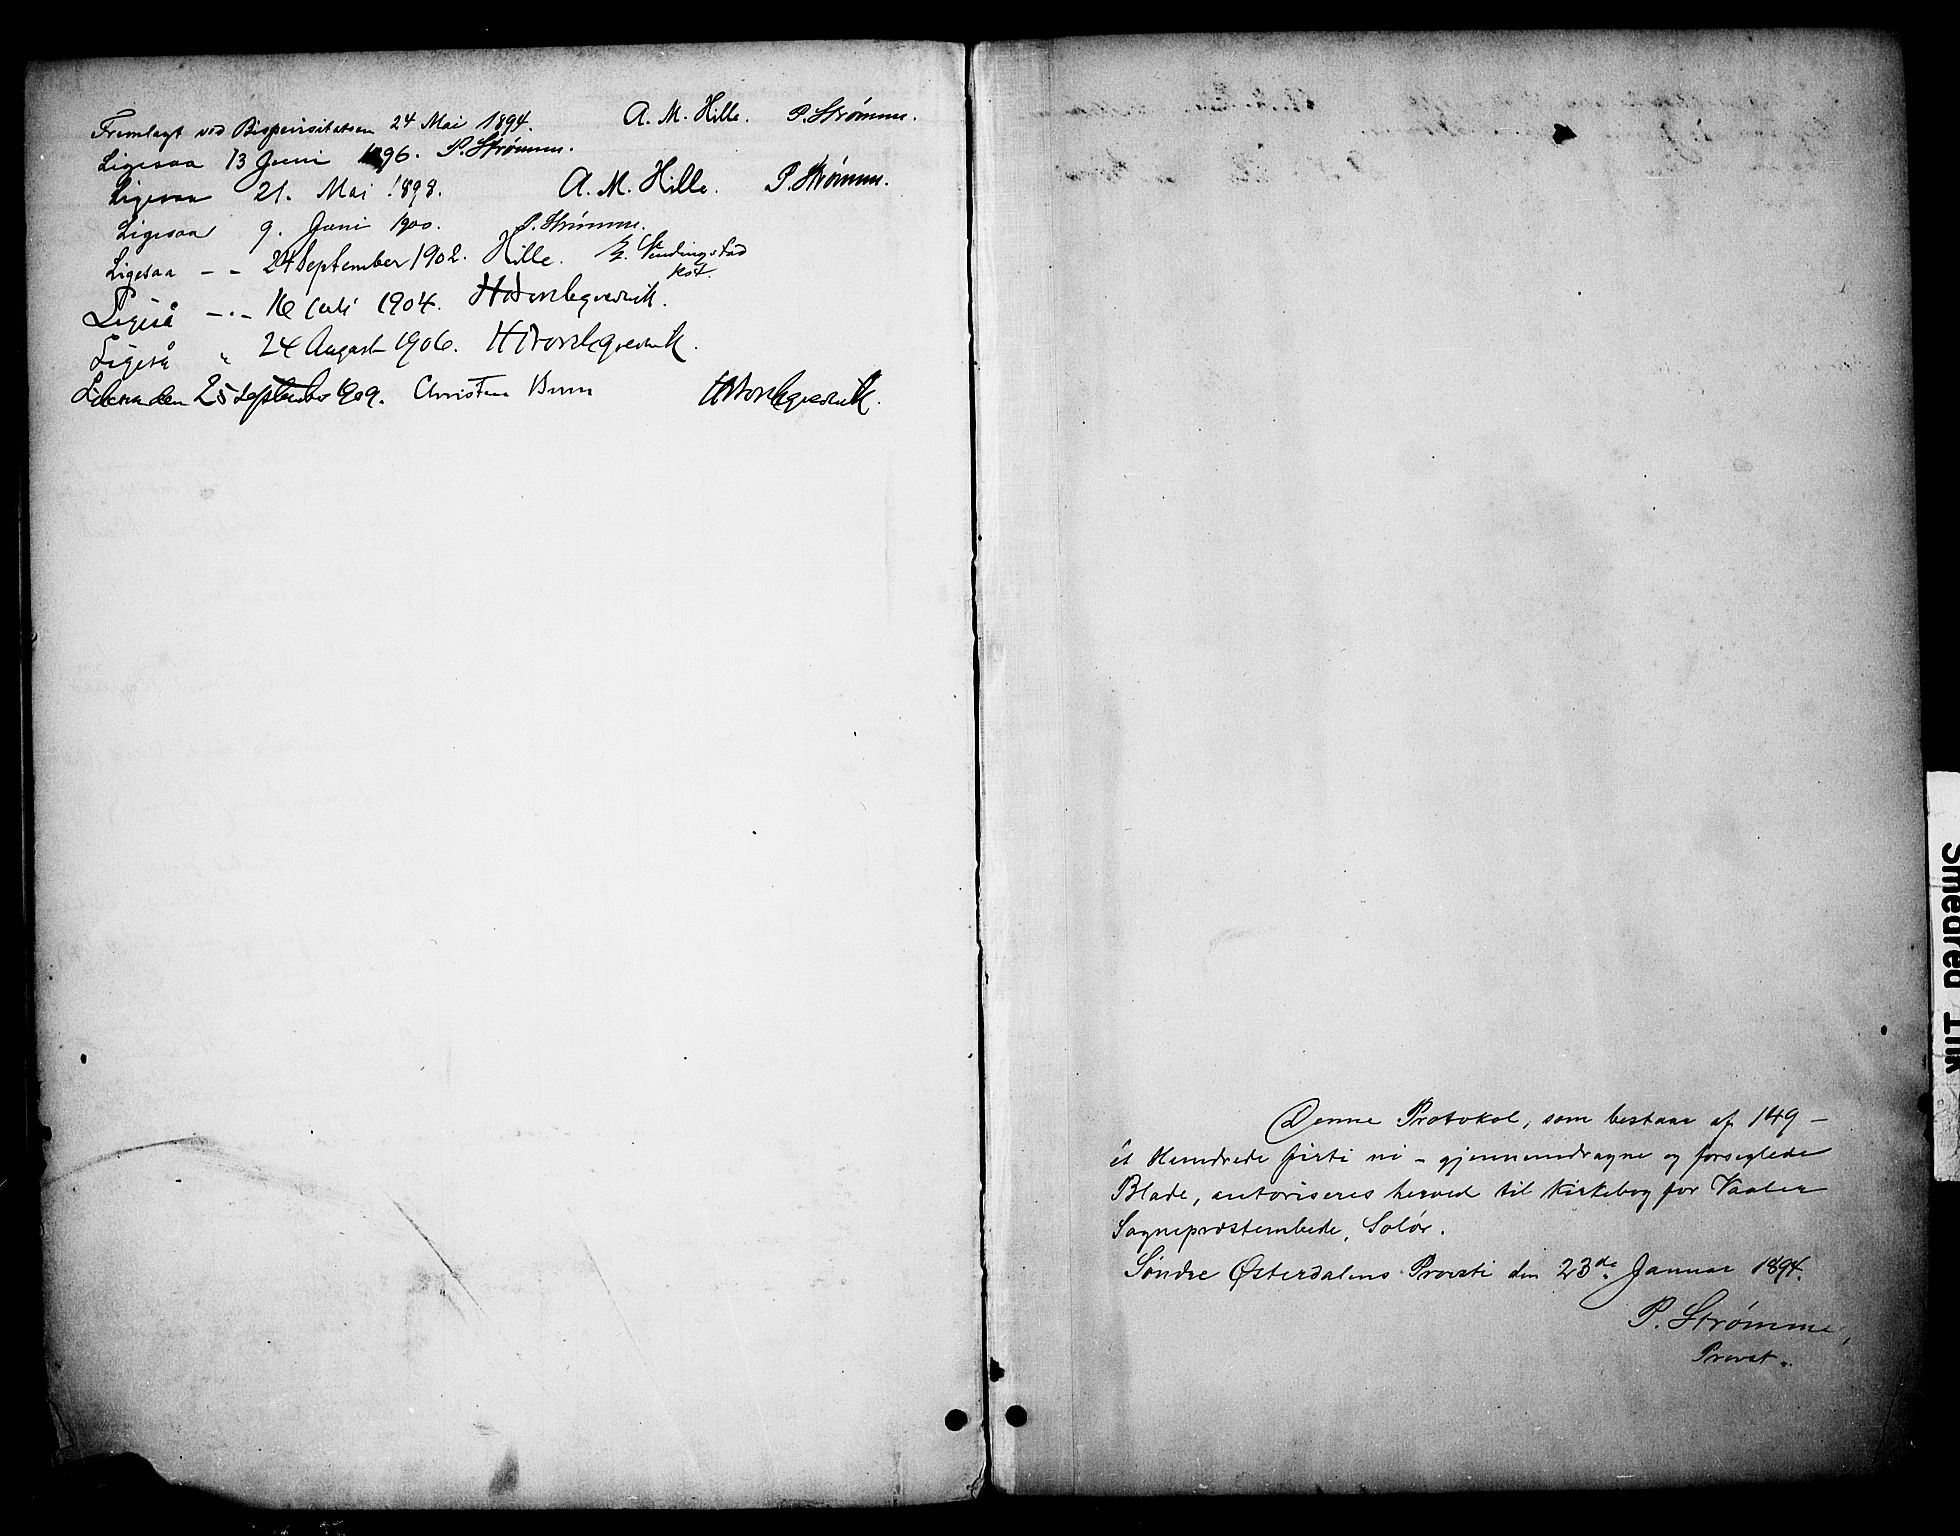 Fremlagt ved Bispevisitatsen 24 Mai 1894. A. M. Hille. P. Strømme.
Ligesaa 13 Juni 1896. P. Strømme.
Ligesaa 21. Mai 1898. A. M. Hille. P. Strømme.
Ligesaa 9. Juni 1900. P. Strømme.
Ligesaa - - 24 September 1902. Hille. Sendingstad
kst.
Ligeså - . - 16 Juli 1904.
Ligeså " 24 August 1906.
den 25 September 1909. Christen Brun
Denne Protokol, som bestaar af 149 -
ét Hundrede firti ni - gjennemdragne og forseglede
Blade, autoriseres herved til Kirkebog for Vaaler
Sogneprestembede, Solør.
Søndre Østerdalens Provsti den 23de Januar 1894.
P. Strømme,
Provst.
Smeared Ink